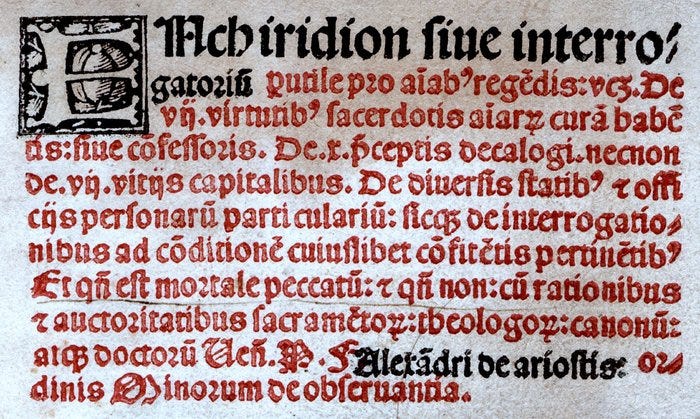 ENchiridion siue interro⸗
gatoriū ꝑutile pro aīabꝰ regēdis: vcꝫ. De
vij. virtutibꝰ sacerdotis aīarꝝ curā habē
tis: siue cōfessoris. De. x. p̄ceptis decalogi. necnon
de. vij. vitijs capitalibus. De diuersis statibꝰ ⁊ offi
cijs personarū parti cularium: sicqꝫ de interrogatio⸗
nibus ad cōditionē cuiuslibet cōfitētis pertinētibꝰ
Et qn̄ est mortale peccatū: ⁊ qn̄ non: cū rationibus
⁊ auctoritatibus sacramētoꝝ: theologoꝝ: canonū:
atqꝫ doctorū Uen̄. P. F. Alexādri de ariostis: or⸗
dinis Minorum de obseruantia.